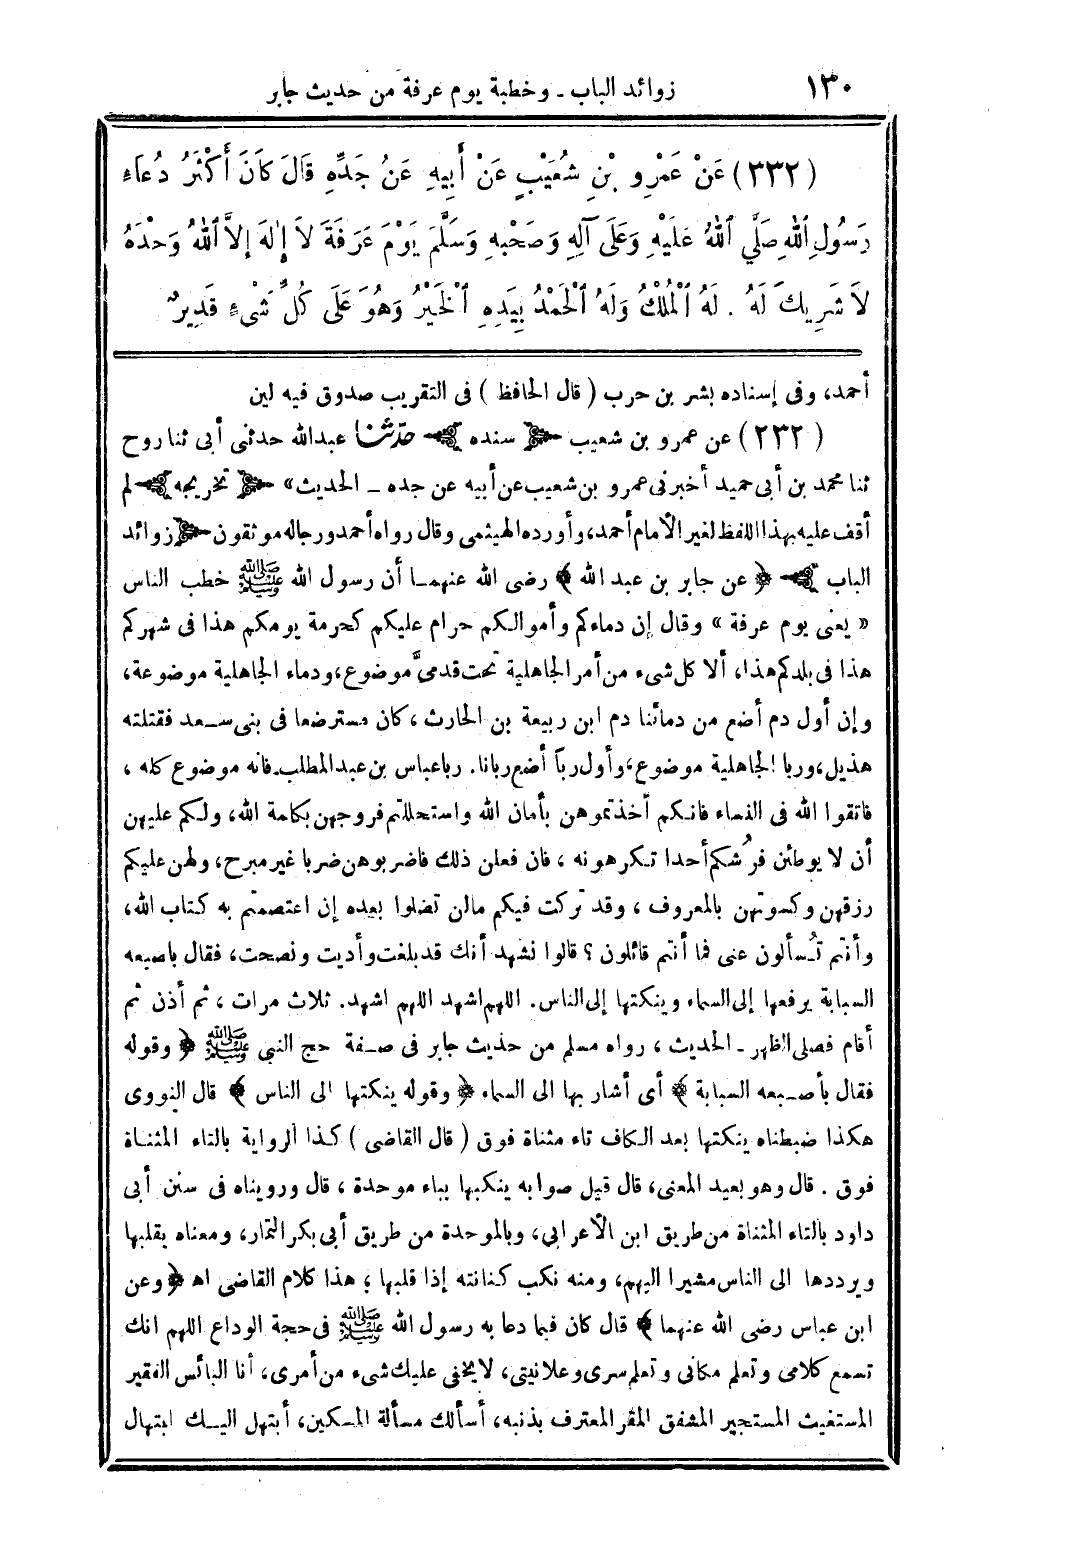 ١٣٠ زوائد الباب ـ وخطبة يوم عرفة من حديث جابر
(٣٣٢) عَنْ عَمْرِو بْنِ شُعَيْبٍ عَنْ أَبِيهِ عَنْ جَدِّهِ قَالَ كَانَ أَكْثَرُ دُعَاءِ
رَسُولِ اللهِ صَلَّي اللهُ عَلَيْهِ وَعَلَى آلِهِ وَصَحْبِهِ وَسَلَّمَ يَوْمَ عَرَفَةَ لاَ إِلهَ إلاَّ اللهُ وَحْدَهُ
لاَ شَرِيكَ لَهُ . لَهُ الْمُلْكُ وَلَهُ الْحَمْدُ بِيَدِهِ الْخَيْرُ وَهُوَ عَلَى كُلِّ شَىْءٍ قَدِيرٌ
أحمد، وفى إسناده بشر بن حرب ( قال الحافظ ) فى التقريب صدوق فيه لين
(٢٣٢) عن عمرو بن شعيب ﴿ سنده ﴾ حدّثنا عبدالله حدثنى أبى ثنا روح
ثنا محمد بن أبى حميد أخبرنى عمرو بن شعيب عن أبيه عن جده ـ الحديث» ﴿ تخريجه ﴾ لم
أقف عليه بهذا اللفظ لغير الأمام أحمد، وأورده الهيثمى وقال رواه أحمد ورجاله موثقون ﴿ زوائد
الباب ﴾ ﴿ عن جابر بن عبد الله ﴾ رضى الله عنهما أن رسول الله ﷺ خطب الناس
« يعنى يوم عرفة » وقال إن دماءكم وأموالكم حرام عليكم كحرمة يومكم هذا فى شهركم
هذا فى بلدكم هذا، ألا كل شىء من أمر الجاهلية تحت قدمىَّ موضوع، ودماء الجاهلية موضوعة،
وإن أول دم أضع من دمائنا دم ابن ربيعة بن الحارث، كان مسترضعا فى بنى سعد فقتلته
هذيل، وربا الجاهلية موضوع، وأول رباً أضع ربانا. ربا عباس بن عبد المطلب فانه موضوع كله ،
فاتقوا الله فى النساء فانكم أخذتموهن بأمان الله واستحللتم فروجهن بكلمة الله، ولكم عليهن
أن لا يوطئن فرُشكم أحدا تكرهونه ، فان فعلن ذلك فاضربوهن ضربا غير مبرح، ولهن عليكم
رزقهن وكسوتهن بالمعروف ، وقد تركت فيكم مالن تضلوا بعده إن اعتصمتم به كتاب الله،
وأنتم تُسألون عنى فما أنتم قائلون ؟ قالوا نشهد أنك قد بلغت وأديت ونصحت، فقال باصبعه
السبابة يرفعها إلى السماء وينكتها إلى الناس. اللهم اشهد اللهم اشهد. ثلاث مرات ، ثم أذن ثم
أقام فصلى الظهر ـ الحديث ، رواه مسلم من حديث جابر فى صفة حج النبي ﷺ ﴿ وقوله
فقال بأصبعه السبابة ﴾ أى أشار بها الى السماء ﴿ وقوله ينكتها الى الناس ﴾ قال النووى
هكذا ضبطناه ينكتها بعد الكاف تاء مثناة فوق ( قال القاضى ) كذا الرواية بالتاء المثناة
فوق . قال وهو بعيد المعنى، قال قيل صوابه ينكبها بباء موحدة ، قال ورويناه فى سنن أبى
داود بالتاء المثناة من طريق ابن الأعرابي، وبالموحدة من طريق أبى بكر التمار، ومعناه يقلبها
ويرددها الى الناس مشيرا اليهم، ومنه نكب كنانته إذا قلبها ؛ هذا كلام القاضى اه ﴿ وعن
ابن عباس رضى الله عنهما ﴾ قال كان فيما دعا به رسول الله ﷺ فى حجة الوداع اللهم انك
تسمع كلامى وتعلم مكانى وتعلم سرى وعلانيتى، لا يخفى عليك شىء من أمرى، أنا البائس الفقير
المستغيث المستجير المشفق المقر المعترف بذنبه، أسألك مسألة المسكين، أبتهل اليك ابتهال